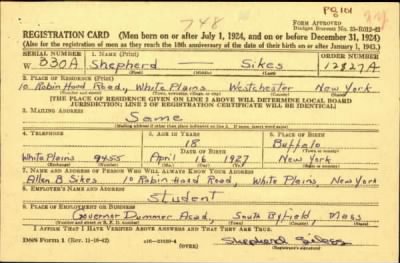 748
PG 101
FORM APPROVED
REGISTRATION CARD (Men born on or after July 1, 1924, and on or before December 31, 1924)
(Also for the registration of men as they reach the 18th anniversary of the date of their birth on or after January 1, 1943.)
SERIAL NUMBER 1. NAME (Print) ORDER NUMBER
W. 330A Shepherd — Sikes 12827A
(First) (Middle) (Last)
2. PLACE OF RESIDENCE (Print)
10 Robin Hood Road, White Plains Westchester New York
[THE PLACE OF RESIDENCE GIVEN ON LINE 2 ABOVE WILL DETERMINE LOCAL BOARD
JURISDICTION; LINE 2 OF REGISTRATION CERTIFICATE WILL BE IDENTICAL]
3. MAILING ADDRESS
Same
[Mailing address if other than place indicated on line 2. If same, insert word same]
4. TELEPHONE 5. AGE IN YEARS 6. PLACE OF BIRTH
18 Buffalo
DATE OF BIRTH
White Plains 9455 April 16 1927 New York
7. NAME AND ADDRESS OF PERSON WHO WILL ALWAYS KNOW YOUR ADDRESS
Allen B. Sikes 10 Robin Hood Road, White Plains, New York
8. EMPLOYER'S NAME AND ADDRESS
Student
9. PLACE OF EMPLOYMENT OR BUSINESS
Governor Dummer Acad, South Byfield, Mass
I AFFIRM THAT I HAVE VERIFIED ABOVE ANSWERS AND THAT THEY ARE TRUE.
DSS Form 1 (Rev. 11-16-42) (OVER) Shepherd Sikes
(Registrant's signature)